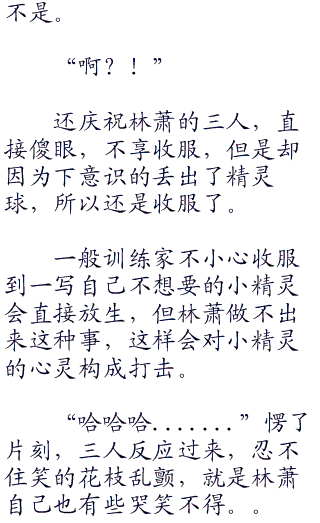 不是。
“啊？！”
还庆祝林萧的三人，直
接傻眼，不享收服，但是却
因为下意识的丢出了精灵
球，所以还是收服了。
一般训练家不小心收服
到一写自己不想要的小精灵
会直接放生，但林萧做不出
来这种事，这样会对小精灵
的心灵构成打击。
“哈哈哈.......”愣了
片刻，三人反应过来，忍不
住笑的花枝乱颤，就是林萧
自己也有些哭笑不得。。